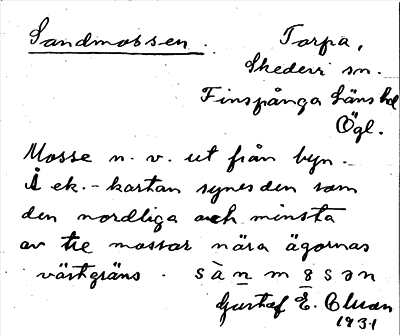 Sandmossen. Torpa,
Skedevi sn.
Finspånga läns hd
Ögl.
Mosse n. v. ut från byn. -
Å ek. - kartan synes den som
den nordliga och minsta
av tre mossar nära ägornas
västgräns. sànmɜsən
Gustaf E.
1931